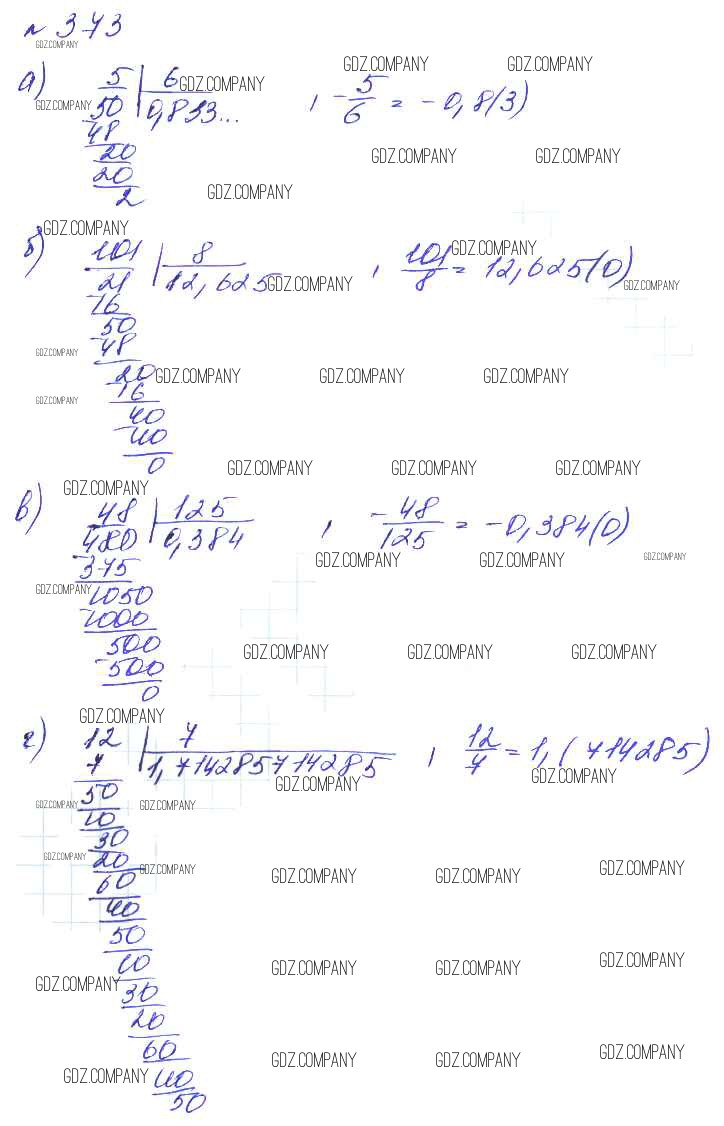 № 373
GDZ.COMPANY
а) 5 | 6 GDZ.COMPANY GDZ.COMPANY GDZ.COMPANY
GDZ.COMPANY 50 | 0,833... , -5/6 = -0,8(3)
48
20 GDZ.COMPANY GDZ.COMPANY
20
2 GDZ.COMPANY
GDZ.COMPANY
б) 101 | 8 , 101/8 = 12,625(0) GDZ.COMPANY
21 | 12,625 GDZ.COMPANY GDZ.COMPANY
16
50
48 GDZ.COMPANY
20 GDZ.COMPANY GDZ.COMPANY GDZ.COMPANY
16 GDZ.COMPANY
40
40
0 GDZ.COMPANY GDZ.COMPANY GDZ.COMPANY
GDZ.COMPANY
в) 48 | 125 , -48/125 = -0,384(0)
480 | 0,384
375 GDZ.COMPANY GDZ.COMPANY GDZ.COMPANY
GDZ.COMPANY 1050
1000
500 GDZ.COMPANY GDZ.COMPANY GDZ.COMPANY
500
0
GDZ.COMPANY
г) 12 | 7 , 12/7 = 1,(714285)
7 | 1,714285714285
GDZ.COMPANY GDZ.COMPANY
50
GDZ.COMPANY GDZ.COMPANY
10
30
GDZ.COMPANY 20 GDZ.COMPANY GDZ.COMPANY GDZ.COMPANY GDZ.COMPANY
60
40
50
10 GDZ.COMPANY GDZ.COMPANY GDZ.COMPANY
GDZ.COMPANY 30
20
60 GDZ.COMPANY GDZ.COMPANY GDZ.COMPANY
GDZ.COMPANY 40
50